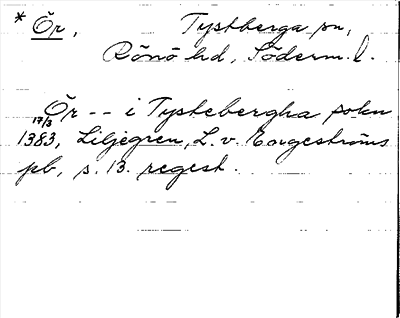 * Ör, Tystberga sn,
Rönö hd, Söderm. l.
Ör -- i Tystebergha sokn
17/3 1383, Liljegren, L. v. Engeströms
pb, s. 13. regest.